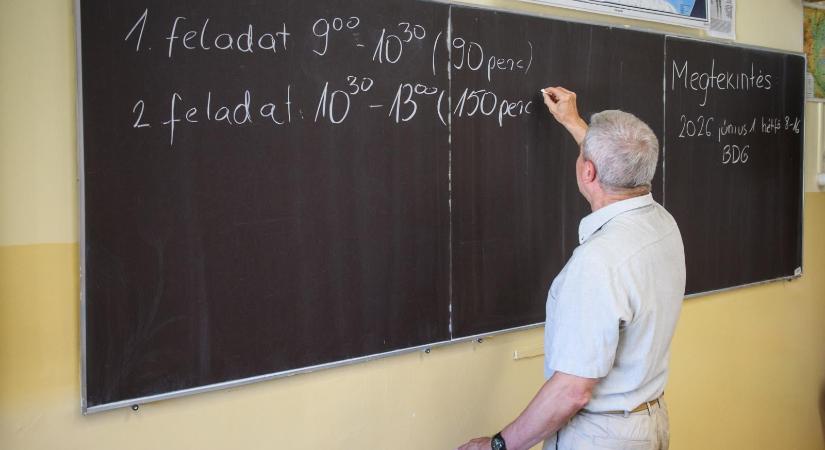 1. feladat 9⁰⁰ - 10³⁰ (90 perc)
2 feladat: 10³⁰ - 13⁰⁰ (150 perc
Megtekintés
2026 június 1 hétfő 8-16
BDG